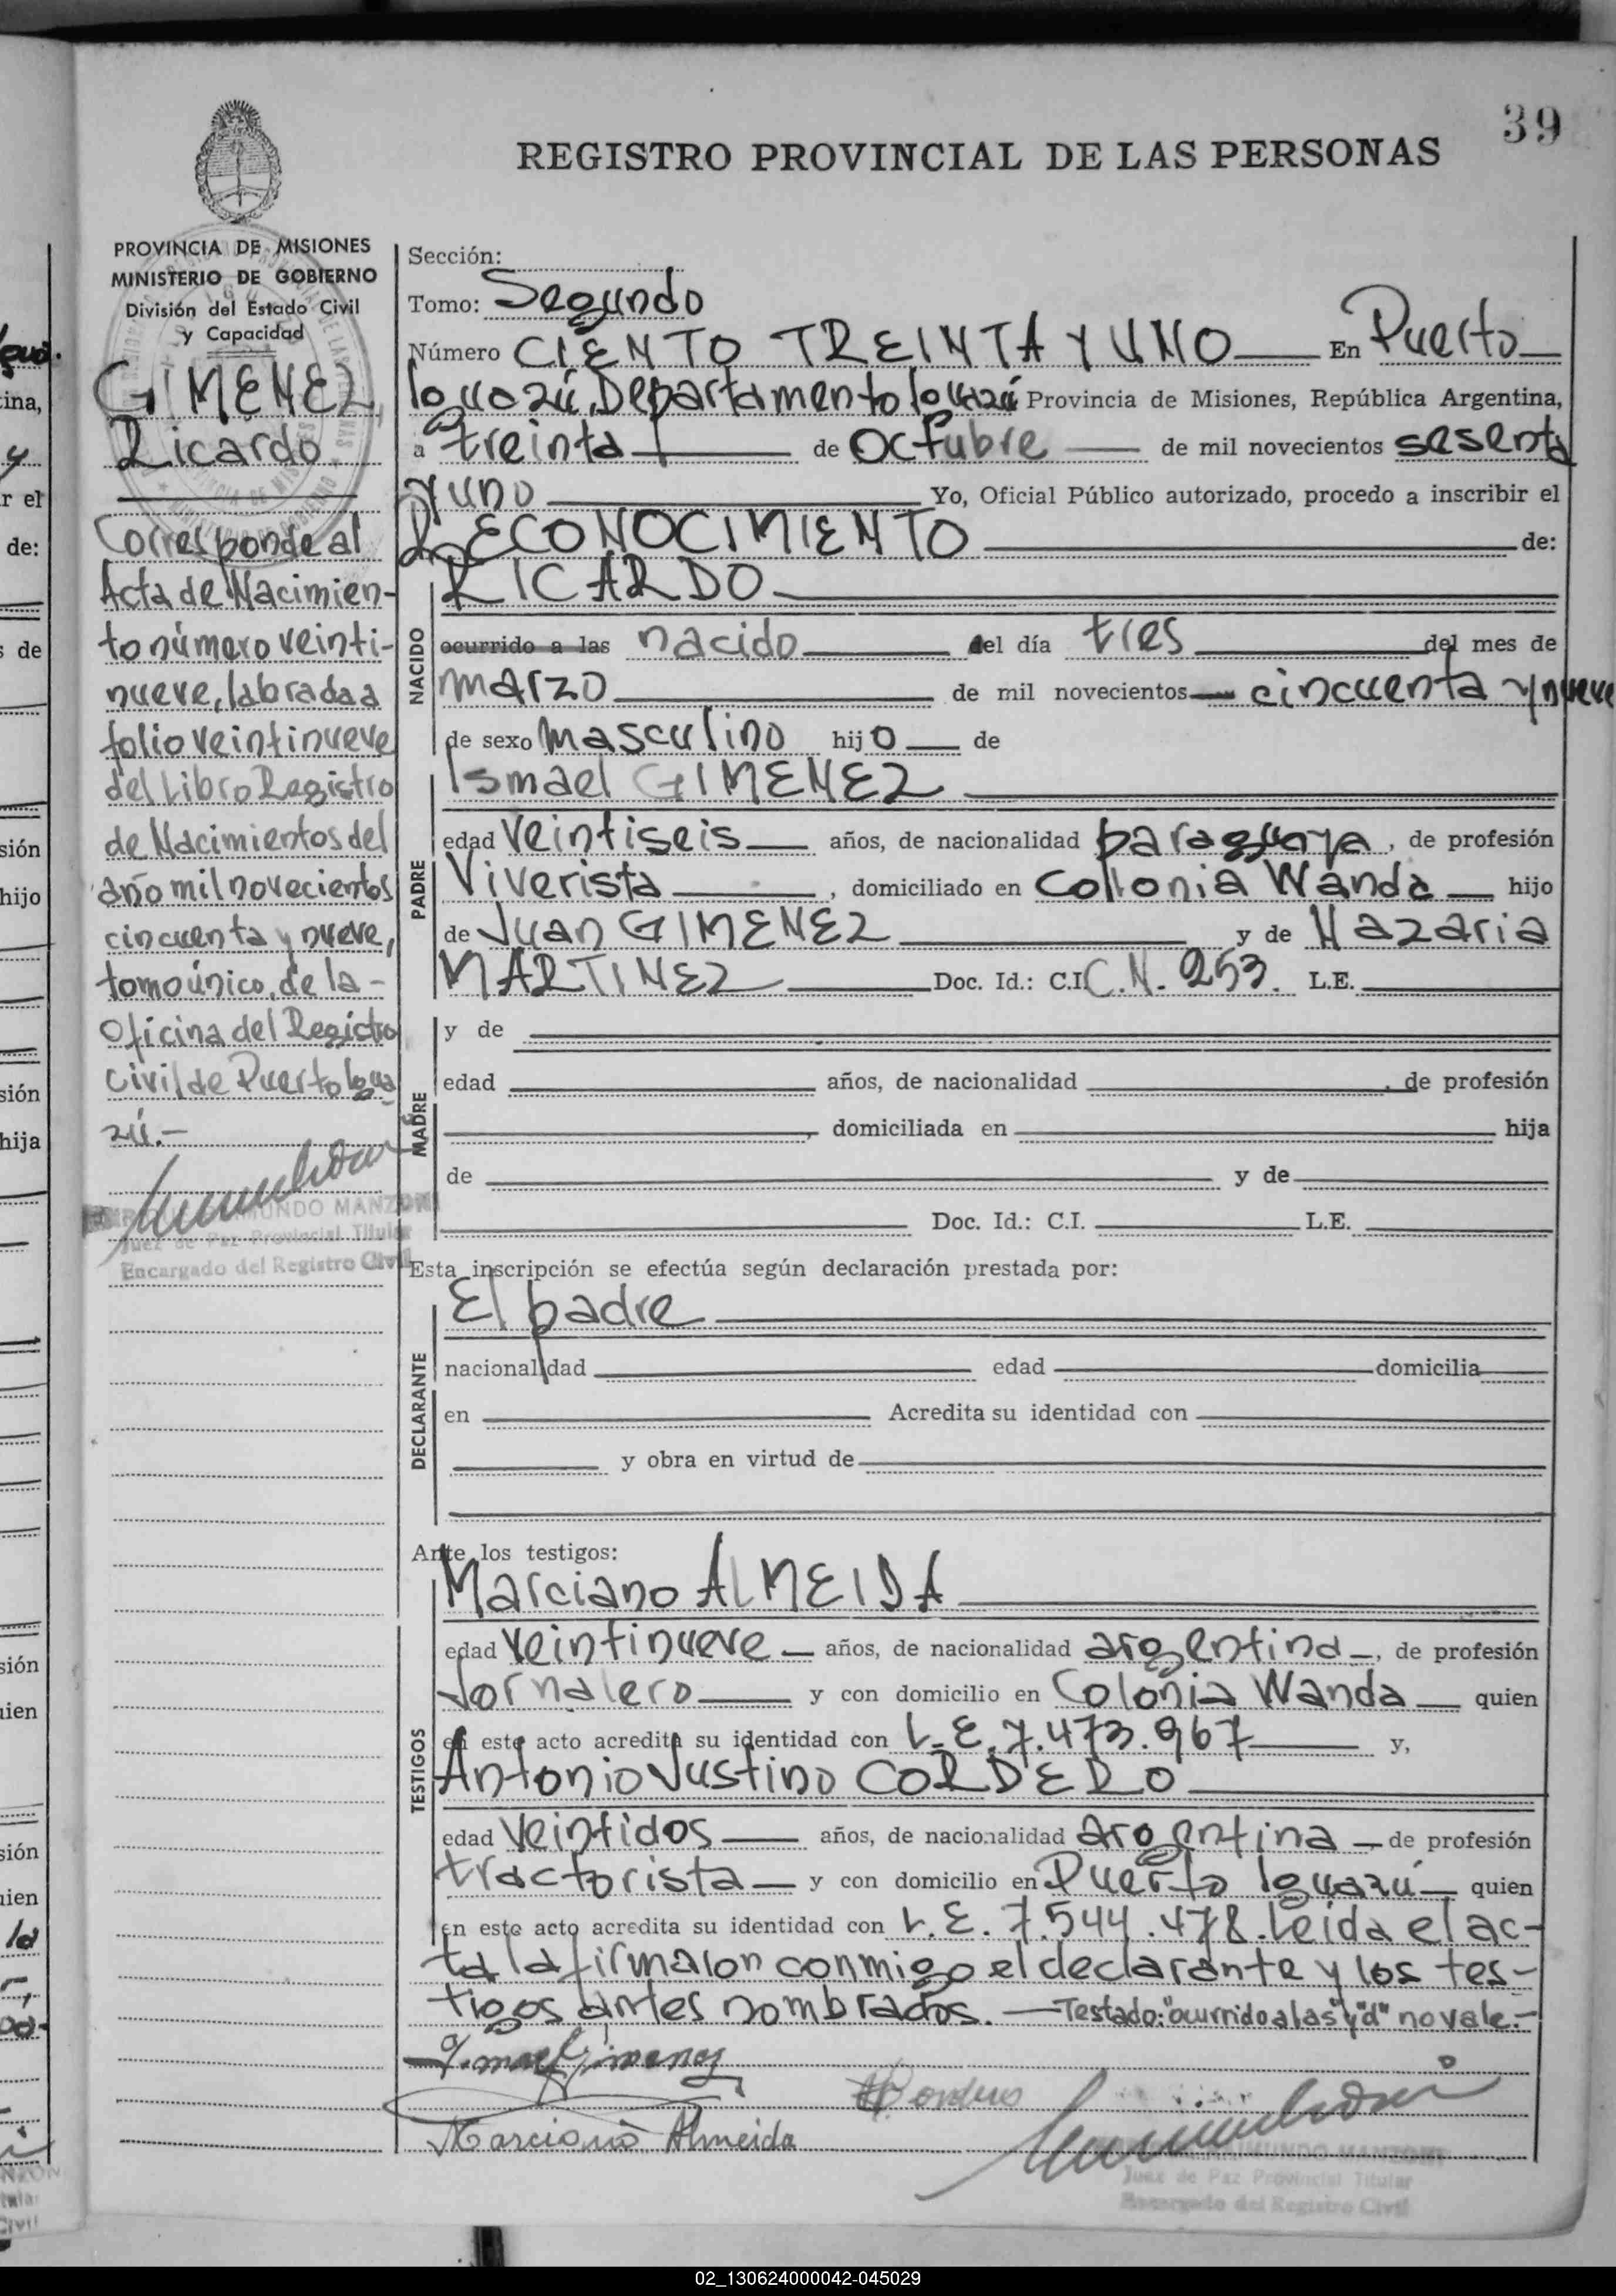 39
REGISTRO PROVINCIAL DE LAS PERSONAS
PROVINCIA DE MISIONES
MINISTERIO DE GOBIERNO
División del Estado Civil
y Capacidad
GIMENEZ
Ricardo
Corresponde al
Acta de Nacimien-
to número veinti-
nueve, labrada a
folio veintinueve
del Libro Registro
de Nacimientos del
año mil novecientos
cincuenta y nueve,
tomo único, de la-
Oficina del Registro
Civil de Puerto Igua
zú.-
MUNDO MANZONI
Juez de Paz Provincial Titular
Encargado del Registro Civil
Sección:
Tomo: Segundo
Número CIENTO TREINTA Y UNO En Puerto
Iguazú, Departamento Iguazú Provincia de Misiones, República Argentina,
a treinta de Octubre de mil novecientos sesenta
y uno Yo, Oficial Público autorizado, procedo a inscribir el
RECONOCIMIENTO de:
NACIDO
RICARDO
ocurrido a las nacido del día tres del mes de
marzo de mil novecientos cincuenta y nueve
de sexo masculino hijo de
PADRE
Ismael GIMENEZ
edad veintiseis años, de nacionalidad paraguaya, de profesión
Viverista, domiciliado en Collonia Wanda hijo
de Juan GIMENEZ y de Nazaria
MARTINEZ Doc. Id.: C.I. C.N. 253. L.E.
MADRE
y de
edad años, de nacionalidad , de profesión
, domiciliada en hija
de y de
Doc. Id.: C.I. L.E.
Esta inscripción se efectúa según declaración prestada por:
DECLARANTE
El padre
nacionalidad edad domicilia
en Acredita su identidad con
y obra en virtud de
Ante los testigos:
TESTIGOS
Marciano ALMEIDA
edad veintinueve años, de nacionalidad argentina, de profesión
Jornalero y con domicilio en Colonia Wanda quien
en este acto acredita su identidad con L.E. 7.473.967 y,
Antonio Justino CORDERO
edad veintidos años, de nacionalidad argentina de profesión
tractorista y con domicilio en Puerto Iguazú quien
en este acto acredita su identidad con L.E. 7.544.478. Leida el ac-
ta la firmaron conmigo el declarante y los tes-
tigos antes nombrados. — Testado: "ocurrido a las" y "d" no vale.-
Ismael Gimenez
Cordero
Marciano Almeida
MUNDO MANZONI
Juez de Paz Provincial Titular
Encargado del Registro Civil
02_130624000042-045029